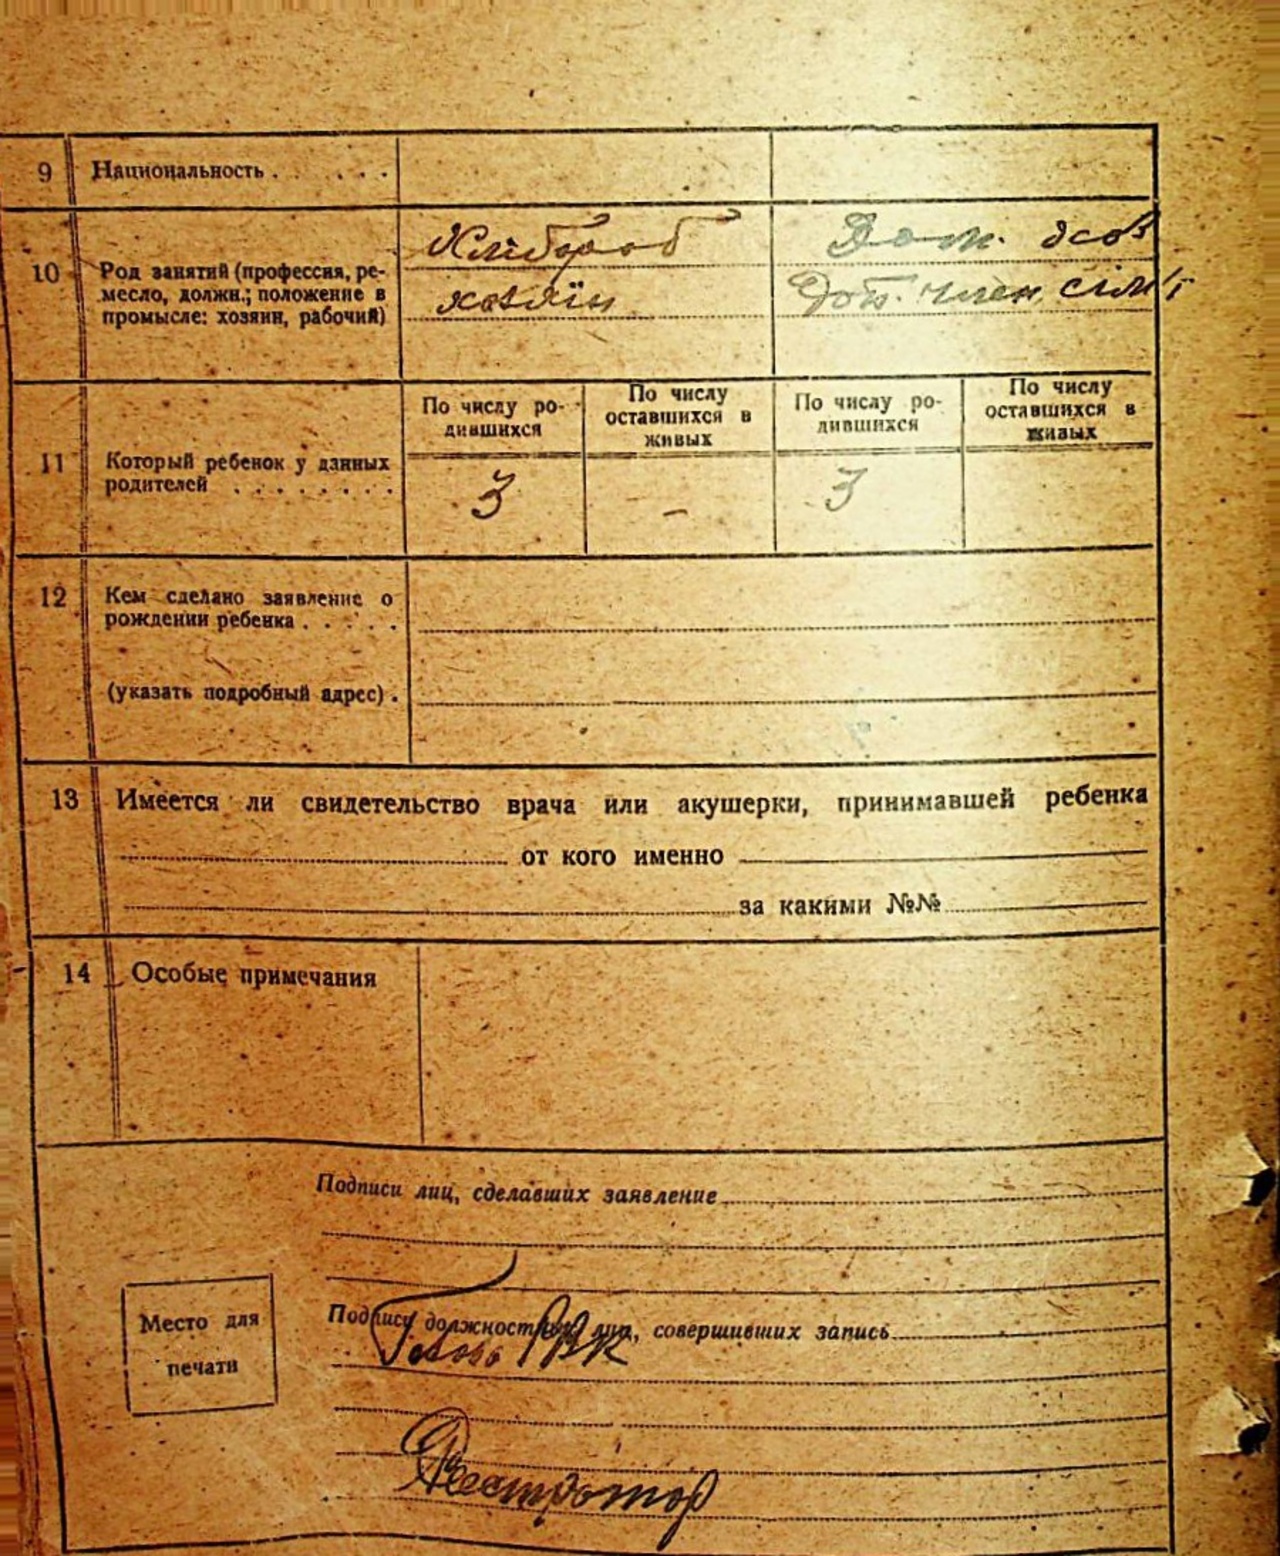 9 Национальность . . . . . .
Хлібороб Дом. госп
10 Род занятий (профессия, ре-
месло, должн.; положение в
промысле: хозяин, рабочий)
хазяїн Доп. член сім'ї
По числу ро-
дившихся
По числу
оставшихся в
живых
По числу ро-
дившихся
По числу
оставшихся в
живых
11 Который ребенок у данных
родителей . . . . . . . .
3 - 3
12 Кем сделано заявление о
рождении ребенка . . . . .
(указать подробный адрес) .
13 Имеется ли свидетельство врача или акушерки, принимавшей ребенка
от кого именно
за какими №№
14 Особые примечания
Подписи лиц, сделавших заявление
Место для
печати
Подписи должностных лиц, совершивших запись
Голова РВК
Реєстратор